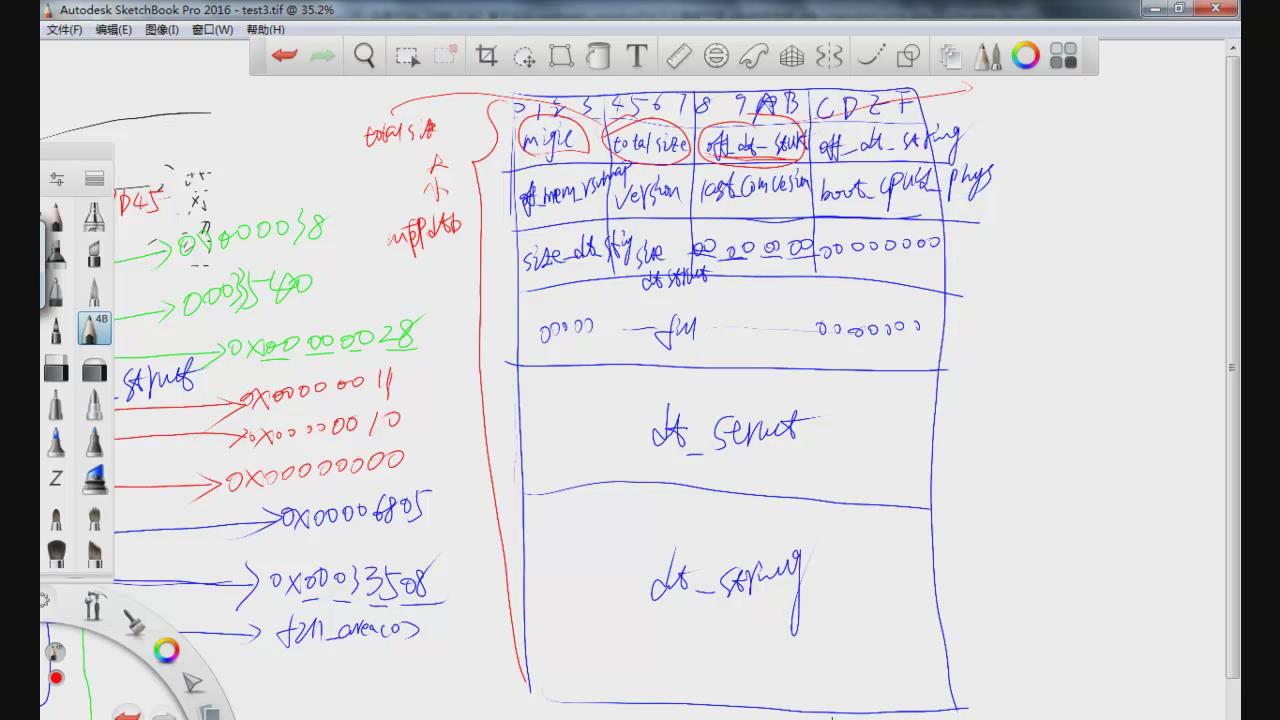 Autodesk SketchBook Pro 2016 - test3.tif @ 35.2%
文件(F) 编辑(E) 图像(I) 窗口(W) 帮助(H)
4B
Z
D45
0x00000038
0x00000028
struct
0x00000011
0x00000010
0x00000000
0x00006805
0x00033508
fill_area(0)
totalsize
大
小
4 5 6 7 8 9 A B C D E F
totalsize off_dt_struct off_dt_string
off_mem_rsvmap version boot_cpuid_phys
size_dt_string size dt struct 00 00 00 00 00000000
00000 fill 00000000
dt_struct
dt_string